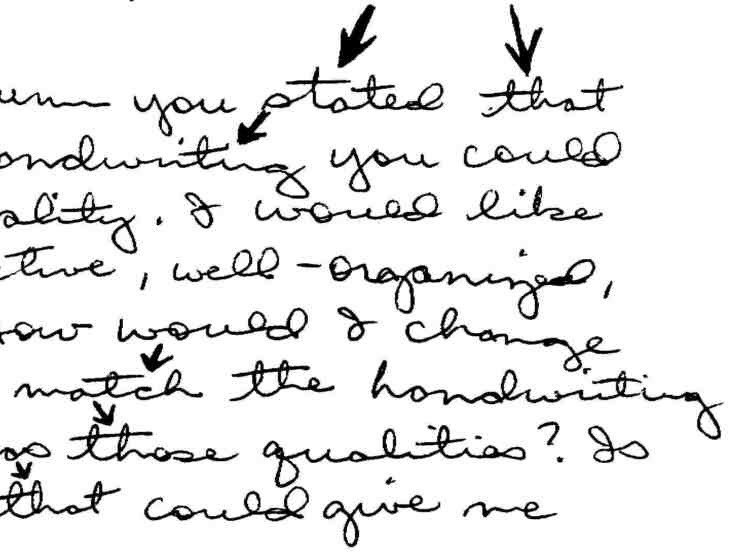 you stated that
andwriting you could
ality. I would like
ctive, well-organized,
ow would I change
match the handwriting
as those qualities? Is
that could give me